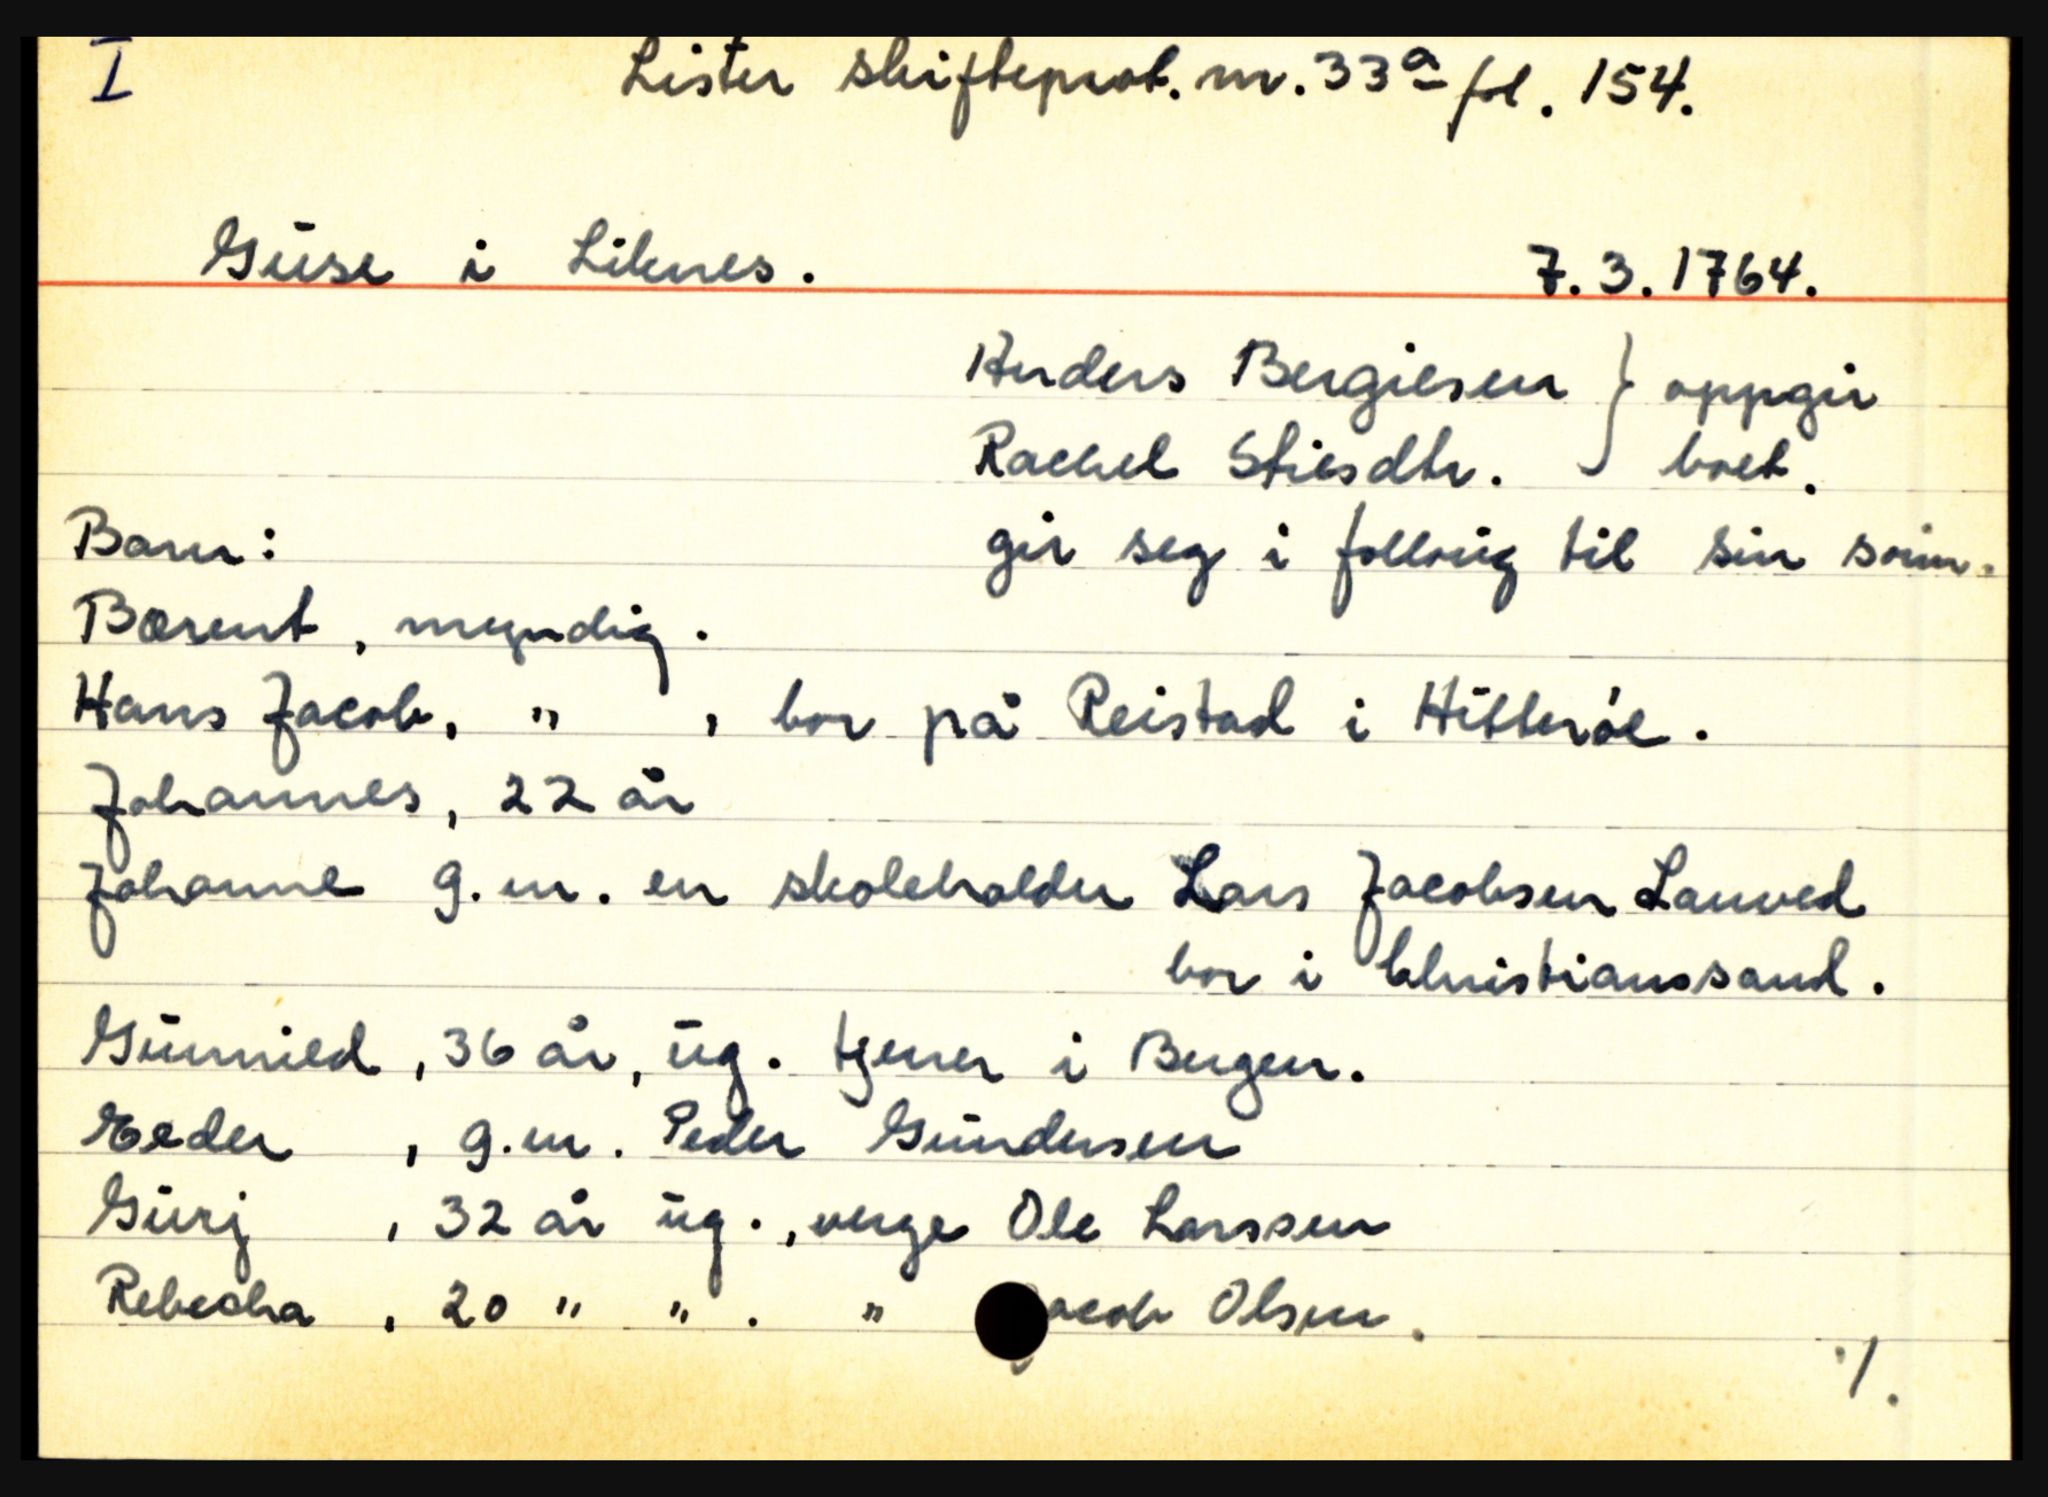 I Lister skifteprot. nr. 33a fol. 154.
Guse i Liknes. 7.3.1764.
Anders Bergiesen } oppgir
Rachel Stiesdtr. } boet.
Barn: gir seg i follaug til sin sønn.
Bærent, myndig.
Hans Jacob, " , bor på Reistad i Hitterøe.
Johannes, 22 år
Johanne g.m. en skoleholder Lars Jacobsen Lauved
bor i Christianssand.
Gunnild, 36 år, ug. tjener i Bergen.
Eeder , g.m. Peder Gundersen
Gurj , 32 år ug., verge Ole Larssen
Rebecha , 20 " " . " Jacob Olsen.
./.